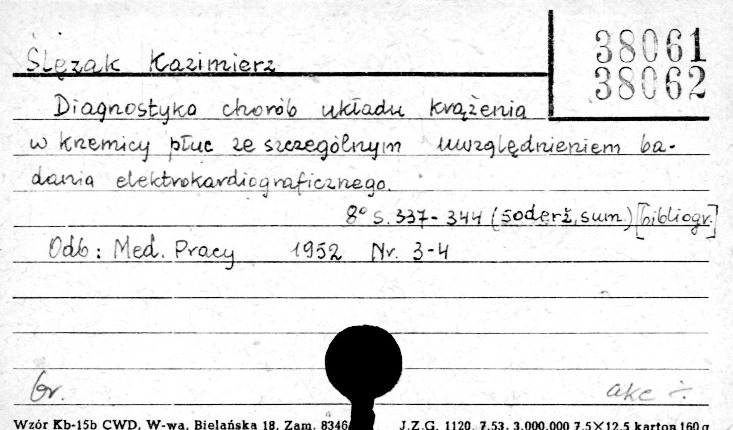 38061
38062
Ślęzak Kazimierz
Diagnostyka chorób układu krążenia
w krzemicy płuc ze szczególnym uwzględnieniem ba-
dania elektrokardiograficznego.
8° s. 337-344 (soderž, sum.) [bibliogr.]
Odb: Med. Pracy 1952 Nr. 3-4
br. akc
Wzór Kb-15b CWD, W-wa, Bielańska 18. Zam. 8346 J.Z.G. 1120. 7.53. 3.000.000 7.5×12.5 karton 160 g